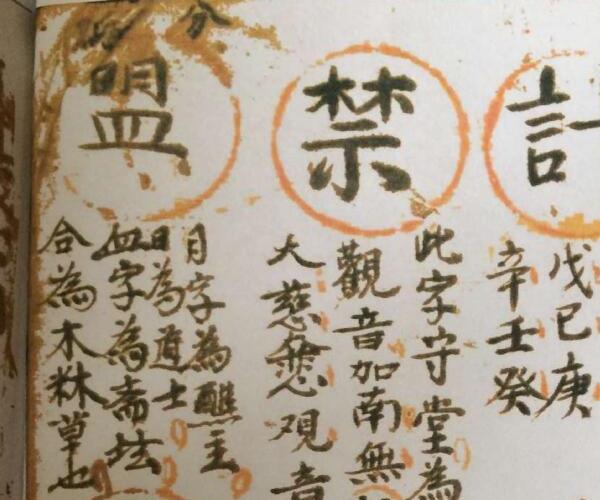 計
戊己庚
辛壬癸
禁
此字守堂為
觀音加南無
大慈悲观音
盟
月字為醮主
日為道士
血字為斋坛
合為木林草也